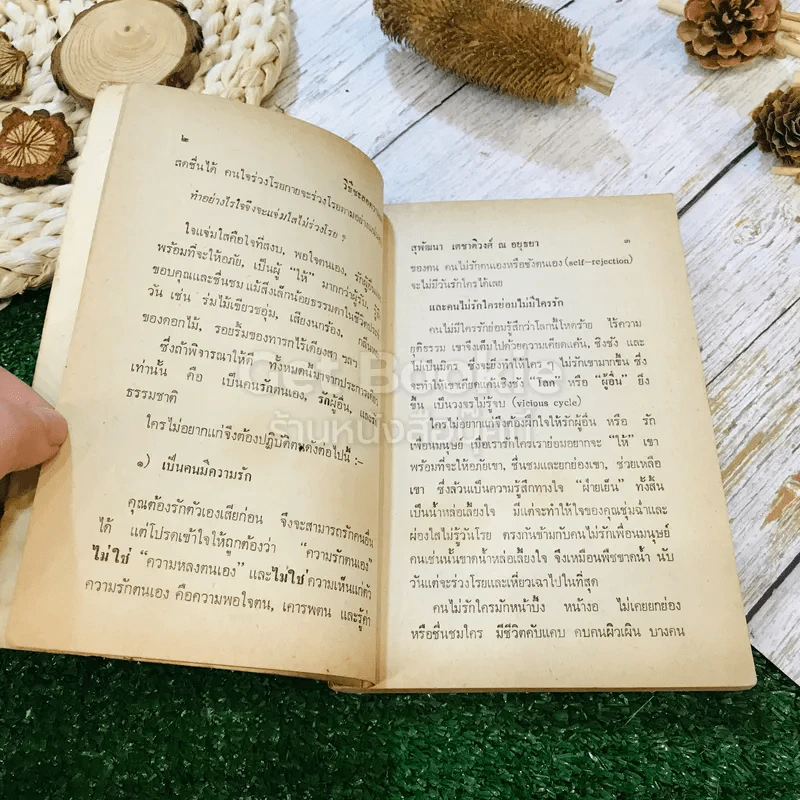 ๒
สดชื่นได้ คนใจร่วงโรยกายจะร่วงโรยตามอย่าง
ทำอย่างไรใจจึงจะแจ่มใสไม่ร่วงโรย ?
ใจแจ่มใสคือใจที่สงบ, พอใจตนเอง, รักผู้อื่น
พร้อมที่จะให้อภัย, เป็นผู้ “ให้” มากกว่าผู้รับ,
ขอบคุณและชื่นชม แม้สิ่งเล็กน้อยธรรมดาในชีวิต
วัน เช่น ร่มไม้เขียวชอุ่ม, เสียงนกร้อง,
ของดอกไม้, รอยยิ้มของทารกไร้เดียงสา ฯลฯ
ซึ่งถ้าพิจารณาให้ดี ทั้งหมดนี้มาจากประการเดียว
เท่านั้น คือ เป็นคนรักตนเอง, รักผู้อื่น, และรัก
ธรรมชาติ
ใครไม่อยากแก่จึงต้องปฏิบัติตนดังต่อไปนี้ :–
๑) เป็นคนมีความรัก
คุณต้องรักตัวเองเสียก่อน จึงจะสามารถรักคนอื่น
ได้ แต่โปรดเข้าใจให้ถูกต้องว่า “ความรักตนเอง”
ไม่ใช่ “ความหลงตนเอง” และไม่ใช่ความเห็นแก่ตัว
ความรักตนเอง คือความพอใจตน, เคารพตน และรู้ค่า
สุพัฒนา เดชาติวงศ์ ณ อยุธยา ๓
ของตน คนไม่รักตนเองหรือชังตนเอง (self–rejection)
จะไม่มีวันรักใครได้เลย
และคนไม่รักใครย่อมไม่มีใครรัก
คนไม่มีใครรักย่อมรู้สึกว่าโลกนี้โหดร้าย ไร้ความ
ยุติธรรม เขาจึงเต็มไปด้วยความเคียดแค้น, ชิงชัง และ
ไม่เป็นมิตร ซึ่งจะยิ่งทำให้ใคร ๆ ไม่รักเขามากขึ้น ซึ่ง
จะทำให้เขาเคียดแค้นชิงชัง “โลก” หรือ “ผู้อื่น” ยิ่ง
ขึ้น เป็นวงจรไม่รู้จบ (vicious cycle)
ใครไม่อยากแก่จึงต้องฝึกใจให้รักผู้อื่น หรือ รัก
เพื่อนมนุษย์ เมื่อเรารักใครเราย่อมอยากจะ “ให้” เขา
พร้อมที่จะให้อภัยเขา, ชื่นชมและยกย่องเขา, ช่วยเหลือ
เขา ซึ่งล้วนเป็นความรู้สึกทางใจ “ฝ่ายเย็น” ทั้งสิ้น
เป็นน้ำหล่อเลี้ยงใจ มีแต่จะทำให้ใจของคุณชุ่มฉ่ำและ
ผ่องใสไม่รู้วันโรย ตรงกันข้ามกับคนไม่รักเพื่อนมนุษย์
คนเช่นนั้นขาดน้ำหล่อเลี้ยงใจ จึงเหมือนพืชขาดน้ำ นับ
วันแต่จะร่วงโรยและเหี่ยวเฉาไปในที่สุด
คนไม่รักใครมักหน้าบึ้ง หน้างอ ไม่เคยยกย่อง
หรือชื่นชมใคร มีชีวิตคับแคบ คบคนผิวเผิน บางคน
Get Bookie
ร้านหนังสือ